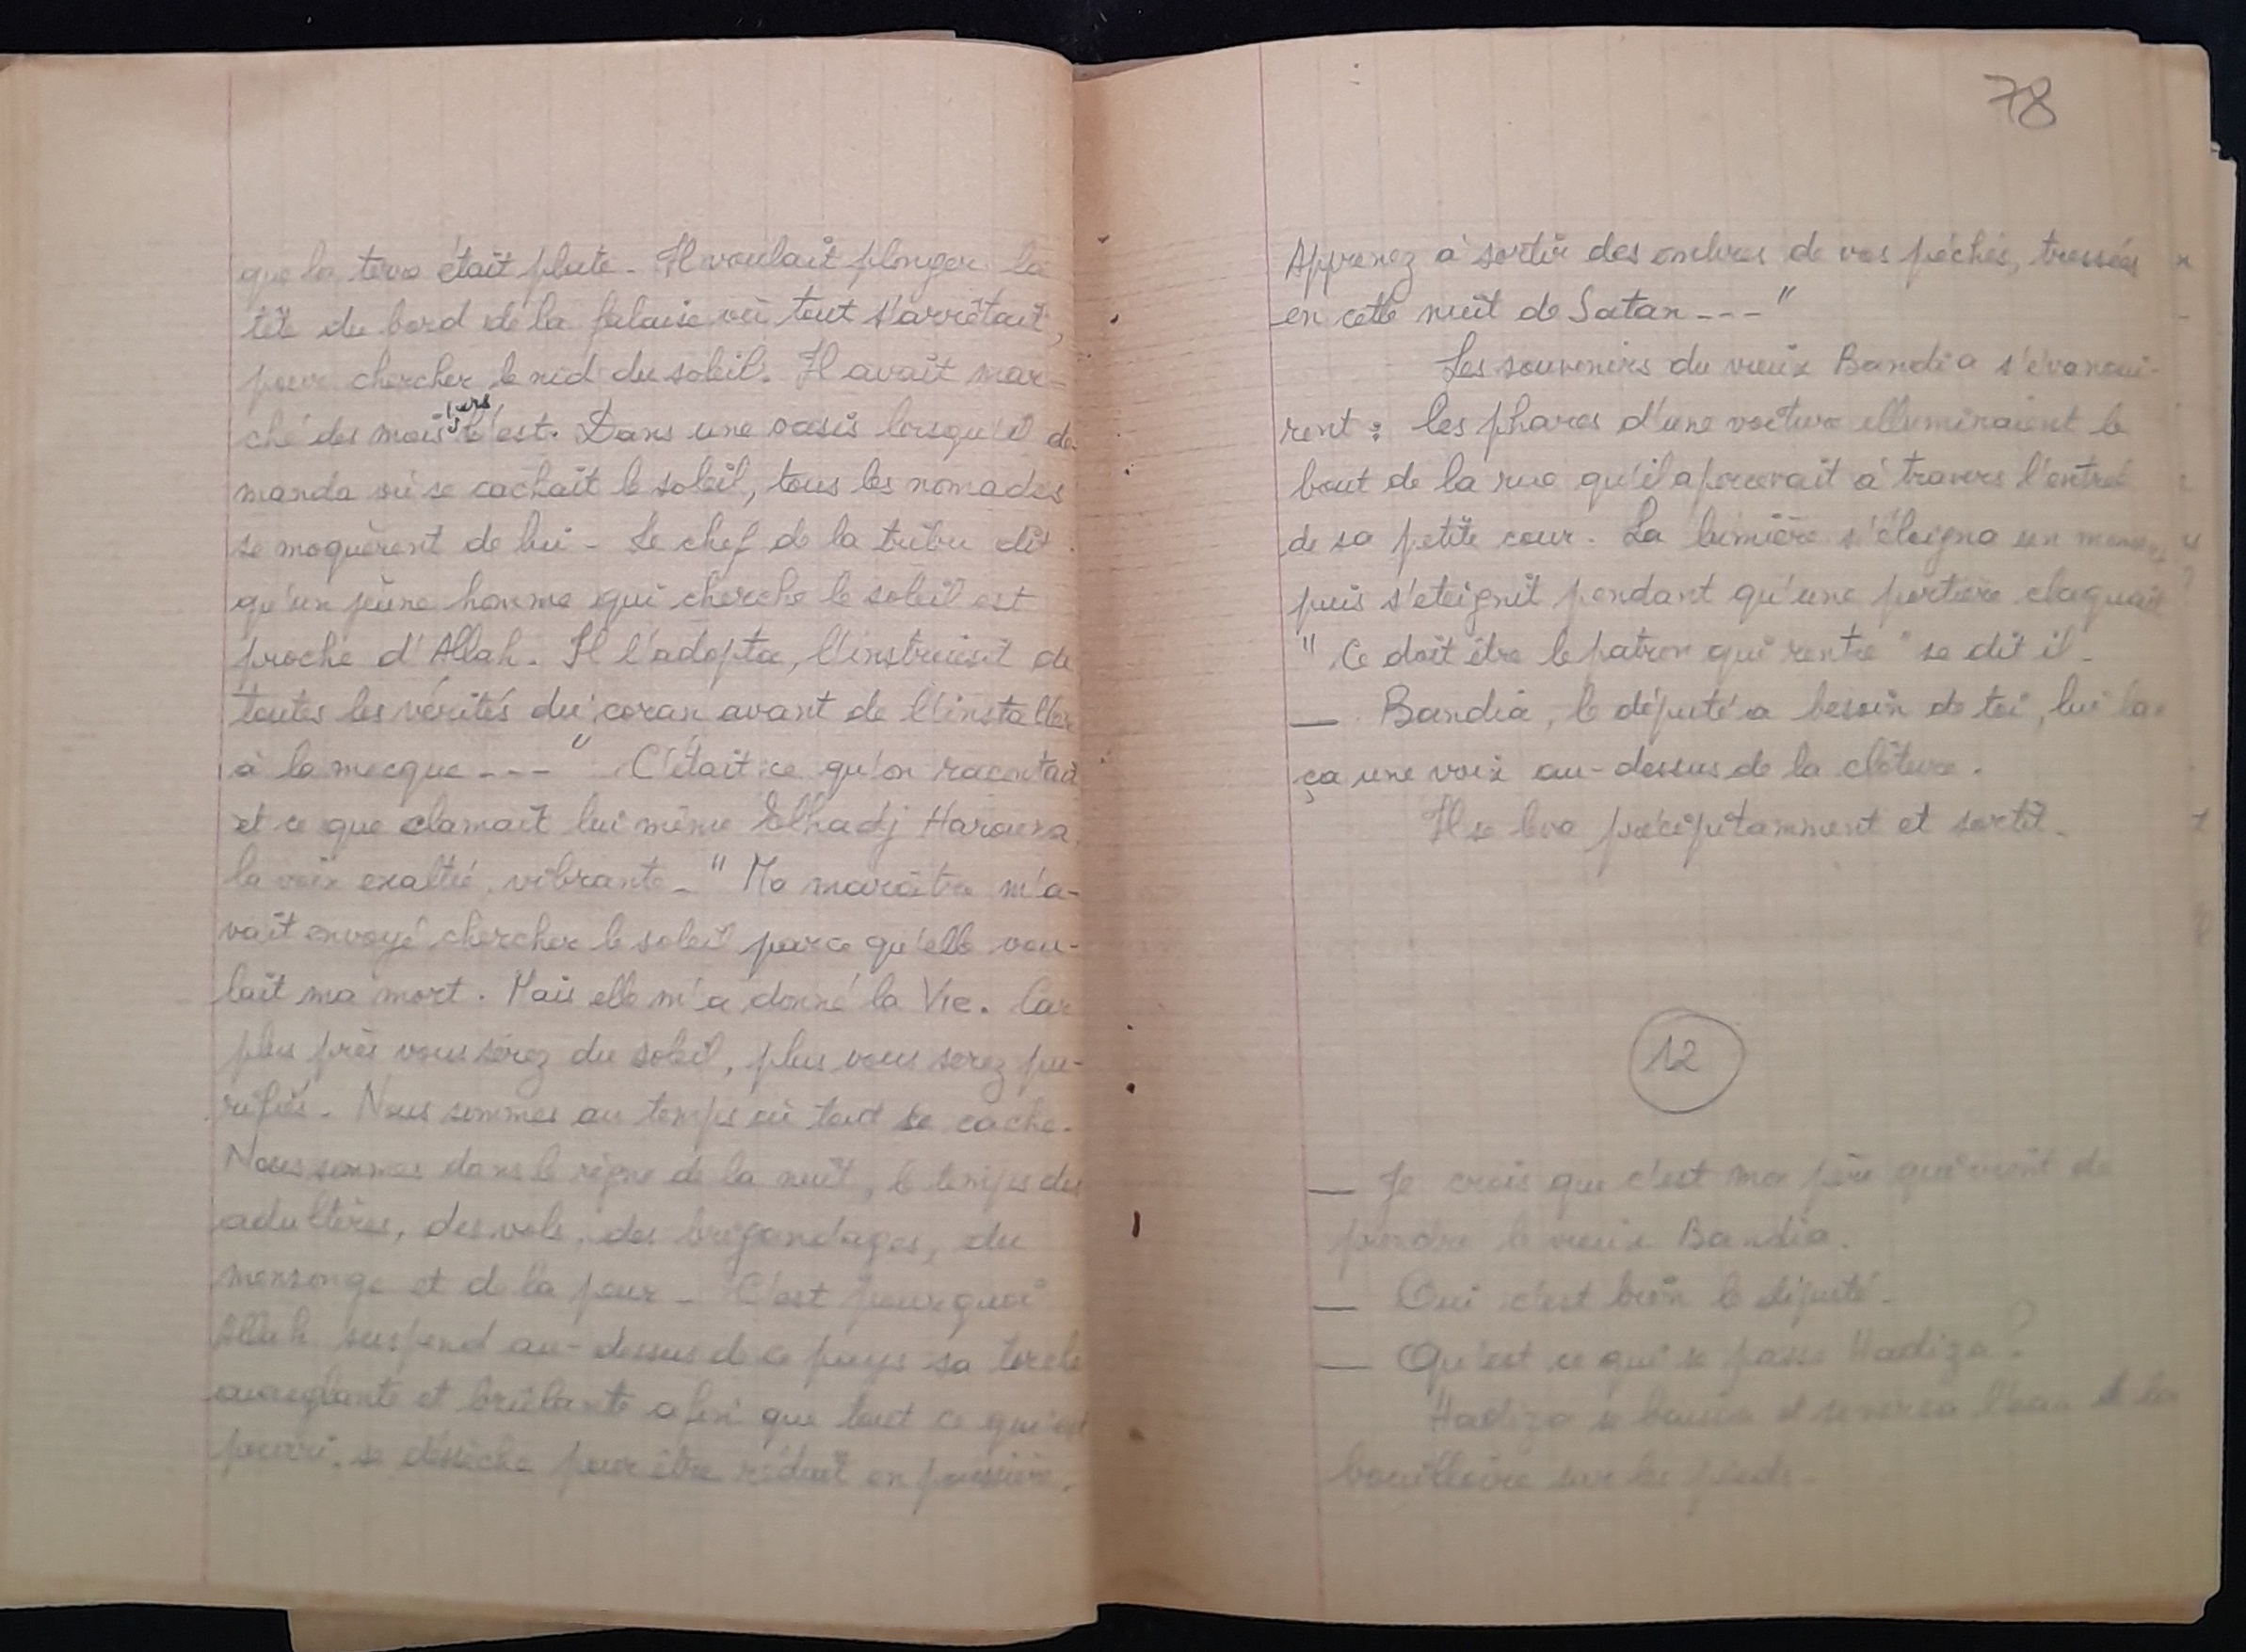 que la terre était plate. Il voulait plonger la
tête du bord de la falaise où tout s'arrêtait,
pour chercher le nid du soleil. Il avait mar-
ché des mois vers l'est. Dans une oasis lorsqu'il de-
manda où se cachait le soleil, tous les nomades
se moquèrent de lui - Le chef de la tribu dit
qu'un jeune homme qui cherche le soleil est
proche d'Allah. Il l'adopta, l'instruisit de
toutes les vérités du coran avant de l'installer
à la mecque --- " C'était ce qu'on racontait
et ce que clamait lui même Elhadj Harouna,
la voix exaltée, vibrante - " Ma marâtre m'a-
vait envoyé chercher le soleil parce qu'elle vou-
lait ma mort. Mais elle m'a donné la Vie. Car
plus près vous serez du soleil, plus vous serez pu-
rifiés - Nous sommes au temps où tout se cache.
Nous sommes dans le règne de la nuit, le temps des
adultères, des vols, des brigandages, du
mensonge et de la peur - C'est pourquoi
Allah suspend au-dessus de ce pays sa torche
aveuglante et brûlante afin que tout ce qui est
pourri, se dessèche pour être réduit en poussière.
78
Apprenez à sortir des ombres de vos péchés, tressées
en cette nuit de Satan --- "
Les souvenirs du vieux Bandia s'évanoui-
rent : les phares d'une voiture illuminaient le
bout de la rue qu'il apercevait à travers l'entrée
de sa petite cour. La lumière s'éloigna un moment
puis s'eteignit pendant qu'une portière claquait
" Ce doit être le patron qui rentre " se dit il -
— Bandia, le député a besoin de toi, lui lan-
ça une voix au-dessus de la clôture.
Il se leva précipitamment et sortit -
12
— Je crois que c'est mon père qui vient de
prendre le vieux Bandia.
— Oui c'est bien le député -
— Qu'est ce qui se passe Hadiza ?
Hadiza se baissa et se versa l'eau de la
bouilloire sur les pieds -